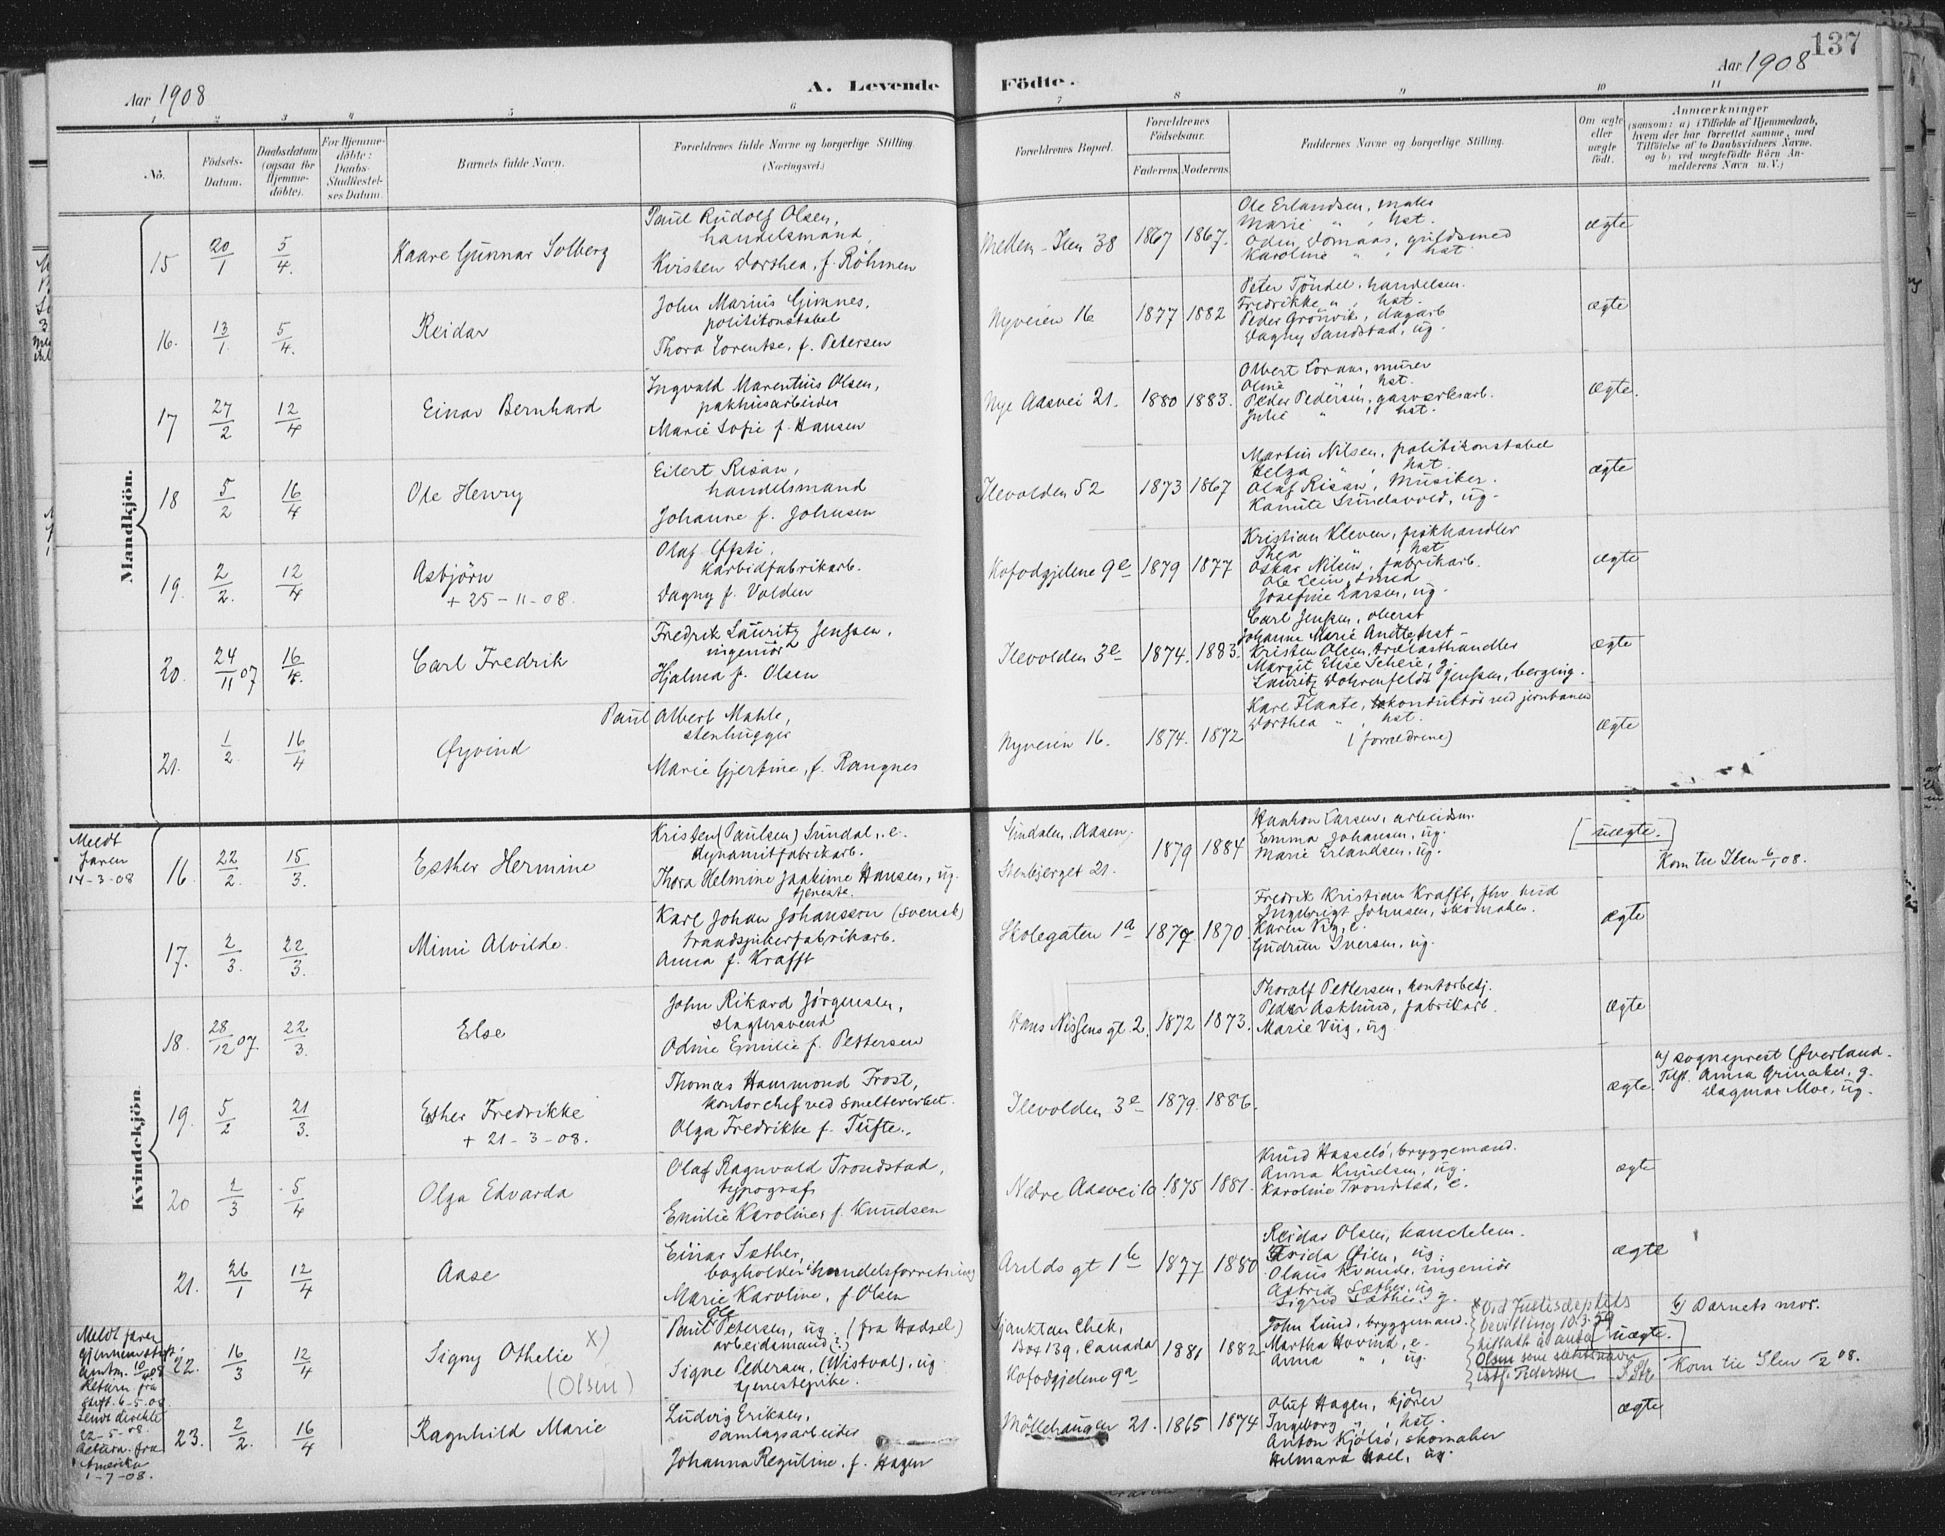 137
Aar 1908
A. Levende
Födte.
Aar 1908
1 2 3 4 5 6 7 8 9 10 11
No.
Födsels-Datum.
Daabsdatum (ogsaa for Hjemme-döbte).
For Hjemme-döbte: Daabs-Stadfæstel-ses Datum.
Barnets fulde Navn.
Forældrenes fulde Navne og borgerlige Stilling.
(Næringsvei.)
Forældrenes Bopæl.
Forældrenes Födselsaar.
Faderens. Moderens.
Faddernes Navne og borgerlige Stilling.
Om ægte eller uægte födt.
Anmærkninger
(saasom: a) i Tilfælde af Hjemmedaab, hvem der har forrettet samme, med Tilföielse af to Daabsvidners Navne, og b) ved uægtefödte Börn An-melderens Navn m. V.)
Mandkjön.
15 20/1 5/4 Kaare Gunnar Solberg
Paul Rudolf Olsen,
handelsmand,
Kristen Dorthea, f. Röhmen
Mellem-Ilen 38 1867 1867.
Ole Erlandsen, maler
Marie " , hst.
Odin Domaas, guldsmed
Karoline " , hst.
ægte
16. 13/1. 5/4. Reidar
John Marius Gimnes,
politikonstabel
Thora Lorentse, f. Petersen
Nyveien 16 1877 1882
Peter Töndel, handelsm.
Fredrikke " , hst.
Peder Grönvik, dagarb
Dagny Sandstad, ug.
ægte
17 27/2 12/4 Einar Bernhard
Ingvald Marentius Olsen,
pakhusarbeider
Marie Sofie f. Hansen
Nye Aasvei 21. 1880 1883.
Olbert Loraas, murer
Oline " , hst.
Peder Pedersen, gasværksarb.
Julie " , hst.
ægte.
18 5/2 16/4 Ole Henry
Eilert Risan,
handelsmand
Johanne f. Johnsen
Ilevolden 52 1873 1867
Martin Nilsen, politikonstabel
Helga " , hst.
Olaf Risan, Musiker.
Kanute Sundsvold, ug.
ægte
19. 2/2. 12/4 Asbjörn
+ 25-11-08.
Olaf Öfsti,
karbidfabrikarb.
Dagny f. Volden
Kofodgjelene 9e 1879 1877
Kristian Kleven, fiskhandler
Thea " , hst
Oskar Nilsen, fabrikarb.
Ole Lein, smed
Josefine Larsen, ug.
ægte
20. 24/11 07 16/4. Carl Fredrik
Fredrik Lauritz Jenssen,
ingeniör
Hjalma f. Olsen
Ilevolden 3e 1874. 1883.
Carl Jenssen, oberst
Johanne Marie Andte, hst
Kristen Olsen, trælasthandler
Margit Elise Scheie, g.
Lauritz Dohrenfeldt Jenssen, berging.
ægte
21. 1/2. 16/4 Øyvind
Paul Albert Mahle,
stenhugger
Marie Gjertine, f. Rangnes
Nyveien 16. 1874. 1872
Kare Flaate, konduktör ved jernbanen
Dorthea " , hst.
(forældrene)
ægte
Kvindekjön
Meldt
faren
14-3-08
16. 22/2. 15/3. Esther Hermine
Kristen (Paulsen) Sundal, e.
dynamitfabrikarb.
Thora Helmine Joakime Hansen, ug.
tjeneste.
Sundalen, Aasen,
Stenbjerget 21. 1879 1884
Haakon Larsen, arbeidsm.
Emma Johansen, ug.
Marie Erlandsen, ug.
[uægte.]
Kom til Ilen 6/1 08.
17. 2/3. 22/3. Mimi Alvilde.
Karl Johan Johansson (svensk)
traadspikerfabrikarb.
Anna f. Krafft
Skolegaten 1a 1879 1870.
Fredrik Kristian Krafft, fhv. smed
Ingebrigt Johnsen, skomaker.
Karen Vig, e.
Gudrun Iversen, ug.
ægte
18. 28/12 07. 22/3. Else
John Rikard Jörgensen,
slagtersvend
Odine Emilie f. Pettersen
Hans Nissens gt 2. 1872 1873.
Thoralf Pettersen, kontorbetj.
Peder Asklund, fabrikarb.
Marie Viig, ug.
ægte
19. 5/2 21/3. Esther Fredrikke
+ 21-3-08.
Thomas Hammond Frost,
kontorchef ved smelteverket.
Olga Fredrikke f. Tufte.
Ilevolden 3e 1879. 1886.
ægte
a) sogneprest Øverland.
Tilst. Anna Grinaker, g.
Dagmar Moe, ug.
20 2/3 5/4 Olga Edvarda
Olaf Ragnvald Trondstad,
typograf
Emilie Karoline, f. Knudsen
Nedre Aasvei 10. 1875 1881.
Knud Hasselö, bryggemand.
Anna Knudsen, ug.
Karoline Trondstad, e.
ægte
21. 26/1 12/4 Aase
Einar Sæther,
bogholder i handelsforretning
Marie Karoline, f. Olsen
Arilds gt 1b 1877 1880
Reidar Olsen, handelsm.
Frida Öien, ug.
Olaus Kvande, ingeniör
Astrid Sæther, ug
Sigrid Sæther, g.
ægte
Meldt faren
gjennem stift.
amtm. 10/4 08
Return fra
stift. 6-5-08
Sendt direkte
22-5-08.
Return fra
Amerika
1-7-08.
22. 16/3 12/4 Signy Othelie x)
(Olsen)
Paul Ole Petersen, ug (fra Hadsel)
arbeidsmand (?)
Signe Pedersen, (Wistval), ug.
tjenestepike.
Box 139, Canada
Kofodgjelene 9a
1881 1882
John Lund, bryggemand.
Martha Hovind, e.
Anna " , ug.
x Ved Justisdeptets
bevilling 10.3.59
tillatt å anta
Olsen som slektsnavn
istf. Pedersen
uægte.
b) Barnets mor.
Kom til Ilen 1/2 08.
23. 2/2. 16/4 Ragnhild Marie
Ludvig Eriksen,
samlagsarbeider
Johanna Reguline, f. Hagen
Möllehaugen 21. 1865 1874
Oluf Hagen, kjörer
Ingeborg " , hst.
Anton Kjölsö, skomaker
Helmara Hoel, ug.
ægte